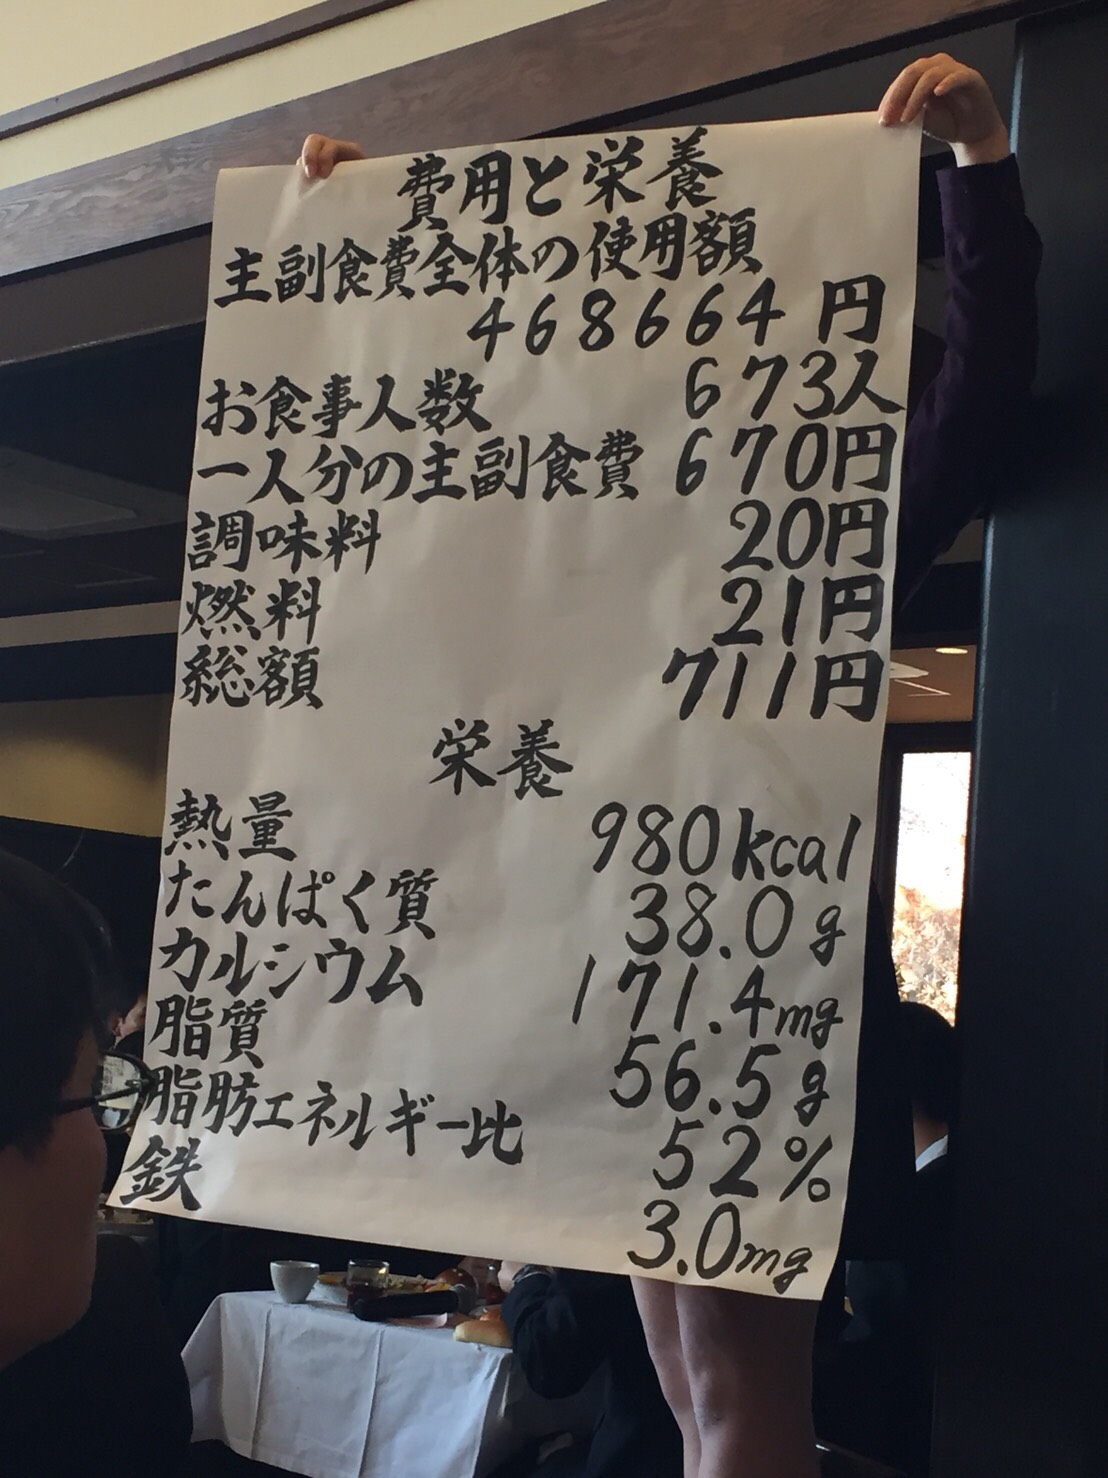 費用と栄養
主副食費全体の使用額
468664円
お食事人数 673人
一人分の主副食費 670円
調味料 20円
燃料 21円
総額 711円
栄養
熱量 980kcal
たんぱく質 38.0g
カルシウム 171.4mg
脂質 56.5g
脂肪エネルギー比 52%
鉄 3.0mg